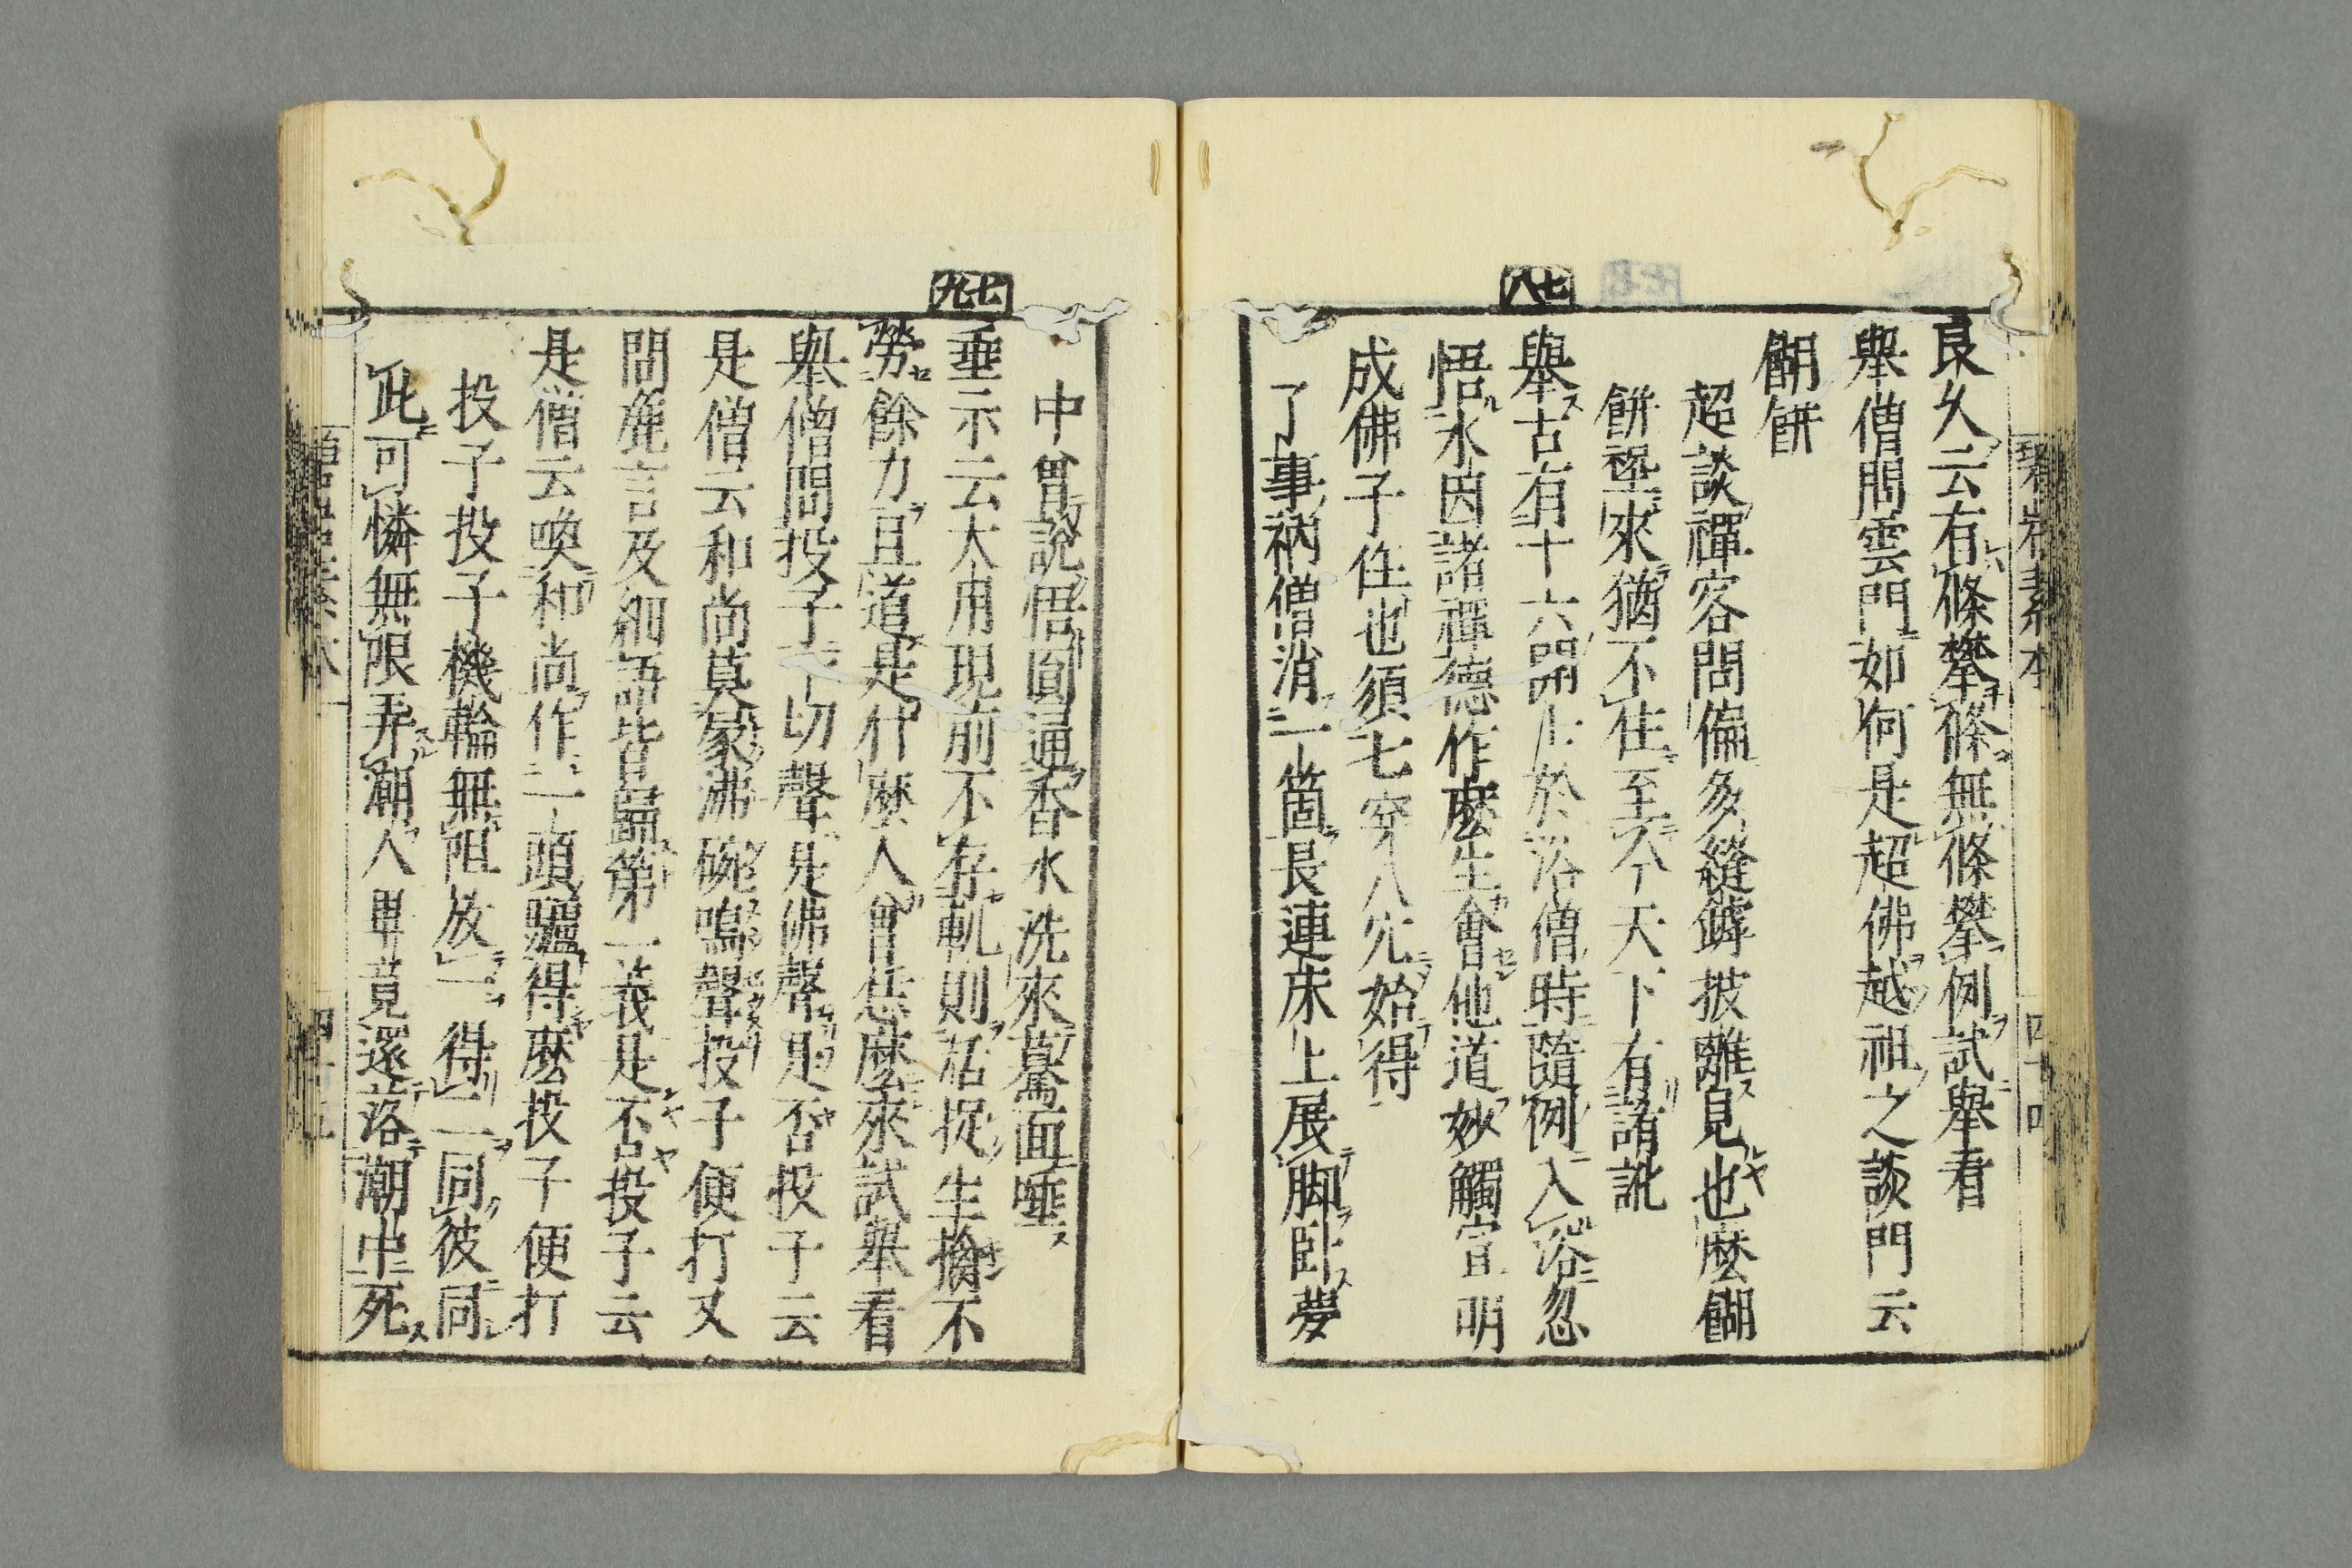 碧岩素本
四十四
七七
良久云有條攀條無條攀例試舉看
舉僧問雲門如何是超佛越祖之談門云
餬餅
超談禪客問偏多縫罅披離見也麽餬
餅𡎺來猶不住至今天下有誵訛
七八
舉古有十六開士於浴僧時隨例入浴忽
悟水因諸禪德作麽生會他道妙觸宣明
成佛子住也須七穿八穴始得
了事衲僧消一箇長連床上展脚卧夢
中曾說悟圓通香水洗來驀面唾
七九
垂示云大用現前不存軌則活捉生擒不
勞餘力且道是什麽人曾恁麽來試舉看
舉僧問投子一切聲是佛聲是否投子云
是僧云和尚莫𡱰沸碗鳴聲投子便打又
問麁言及細語皆歸第一義是否投子云
是僧云喚和尚作一頭驢得麽投子便打
投子投子機輪無阻放一得二同彼同
此可憐無限弄潮人畢竟還落潮中死